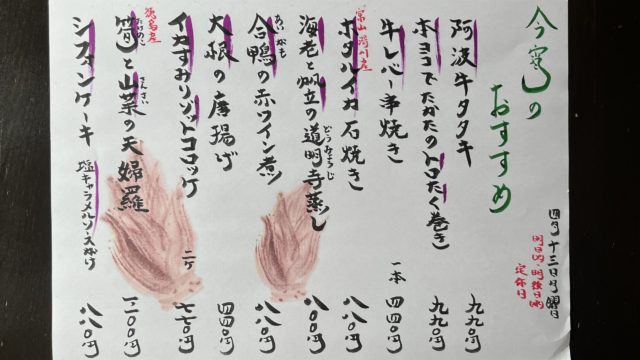 四月十三日月曜日
明日(火)・明後日(水)
定休日
今宵の
おすすめ
阿波牛タタキ 九九〇円
本ヨコでたかたのトロたく巻き 九九〇円
牛レバー串焼き 一本 四四〇円
富山 滑川産
ホタルイカ石焼き 八八〇円
どうみょうじ
海老と帆立の道明寺蒸し
あいがも
合鴨の赤ワイン煮 八八〇円
大根の唐揚げ 四四〇円
イカすみリゾットコロッケ 二ヶ 七七〇円
徳島産
たけのこ さんさい
筍と山菜の天婦羅
シフォンケーキ 塩キャラメルソース掛け 八八〇円